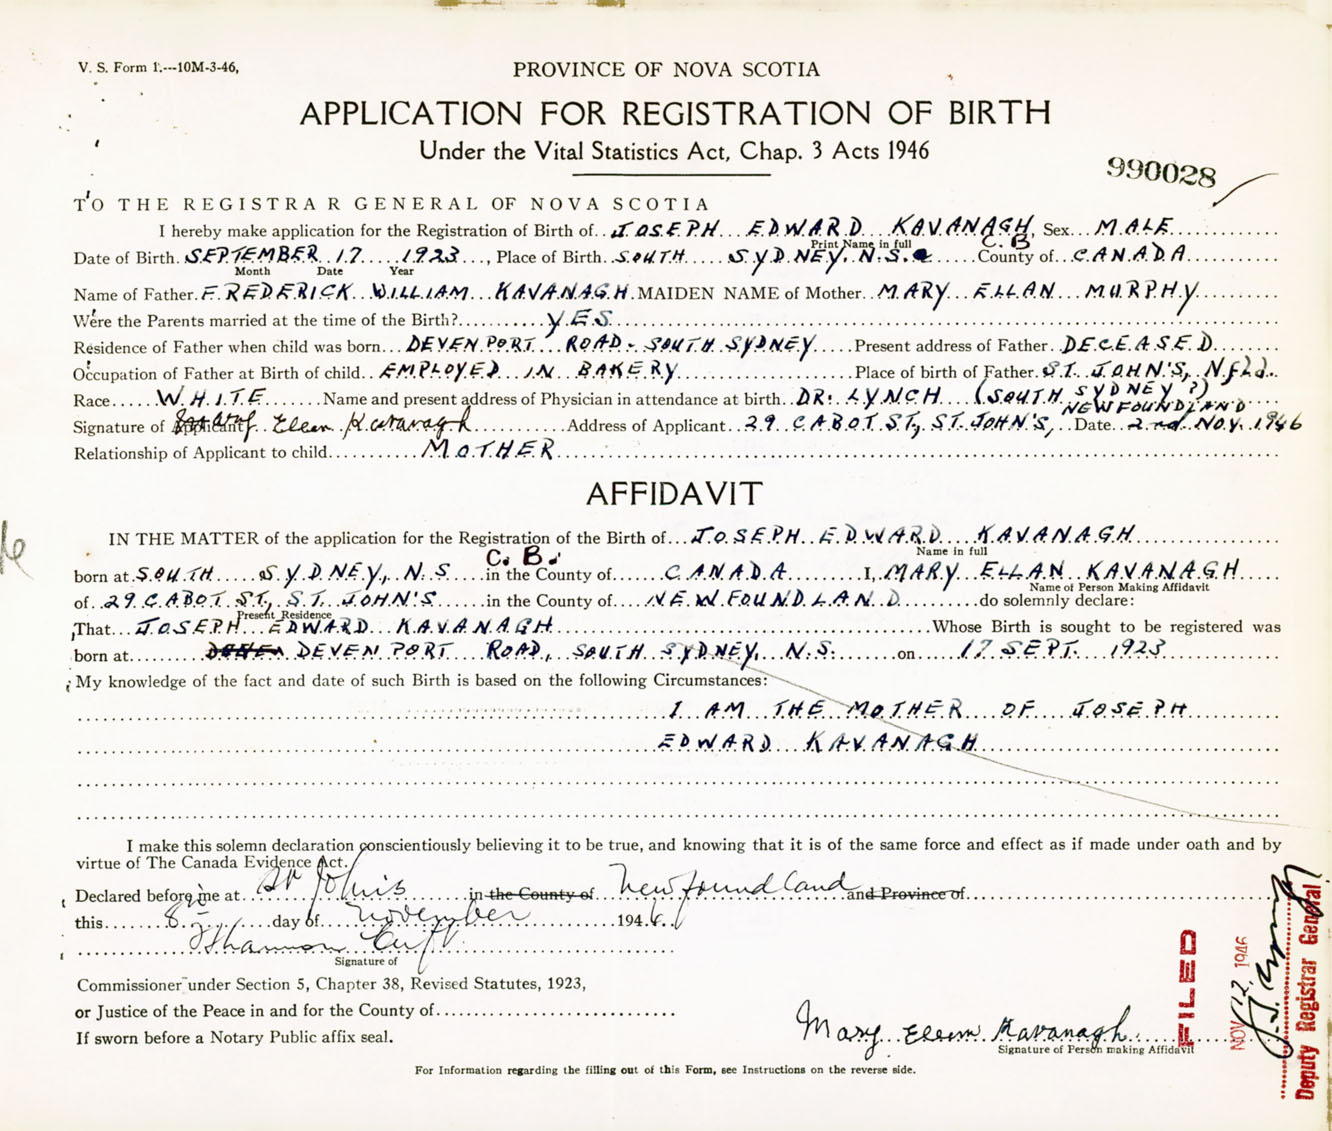 V. S. Form 1.---10M-3-46,
PROVINCE OF NOVA SCOTIA
APPLICATION FOR REGISTRATION OF BIRTH
Under the Vital Statistics Act, Chap. 3 Acts 1946
990028
TO THE REGISTRAR GENERAL OF NOVA SCOTIA
I hereby make application for the Registration of Birth of JOSEPH EDWARD KAVANAGH, Sex MALE
Print Name in full C. B
Date of Birth SEPTEMBER 17 1923, Place of Birth SOUTH SYDNEY. N.S. County of CANADA
Month Date Year
Name of Father FREDERICK WILLIAM KAVANAGH. MAIDEN NAME of Mother MARY ELLAN MURPHY
Were the Parents married at the time of the Birth? YES
Residence of Father when child was born DEVEN PORT ROAD - SOUTH SYDNEY Present address of Father DECEASED
Occupation of Father at Birth of child EMPLOYED IN BAKERY Place of birth of Father ST. JOHN'S, Nfld.
Race WHITE Name and present address of Physician in attendance at birth DR. LYNCH (SOUTH SYDNEY ?)
NEWFOUNDLAND
Signature of Applicant Ellen Kavanagh Address of Applicant 29 CABOT ST, ST. JOHN'S, Date 2nd NOV. 1946
Relationship of Applicant to child MOTHER
AFFIDAVIT
IN THE MATTER of the application for the Registration of the Birth of JOSEPH EDWARD KAVANAGH
Name in full
C. B.
born at SOUTH SYDNEY, N.S in the County of CANADA I, MARY ELLAN KAVANAGH
Name of Person Making Affidavit
of 29 CABOT ST, ST. JOHN'S in the County of NEWFOUNDLAND do solemnly declare:
Present Residence
That JOSEPH EDWARD KAVANAGH Whose Birth is sought to be registered was
born at DEVEN PORT ROAD, SOUTH SYDNEY, N.S. on 17 SEPT. 1923
My knowledge of the fact and date of such Birth is based on the following Circumstances:
I AM THE MOTHER OF JOSEPH
EDWARD KAVANAGH
I make this solemn declaration conscientiously believing it to be true, and knowing that it is of the same force and effect as if made under oath and by
virtue of The Canada Evidence Act.
Declared before me at St Johns in the County of Newfoundland and Province of
this 8 day of November 1946.
Signature of
Commissioner under Section 5, Chapter 38, Revised Statutes, 1923,
or Justice of the Peace in and for the County of
If sworn before a Notary Public affix seal.
Mary Ellen Kavanagh
Signature of Person making Affidavit
For Information regarding the filling out of this Form, see Instructions on the reverse side.
FILED
NOV 12 1946
Deputy Registrar General